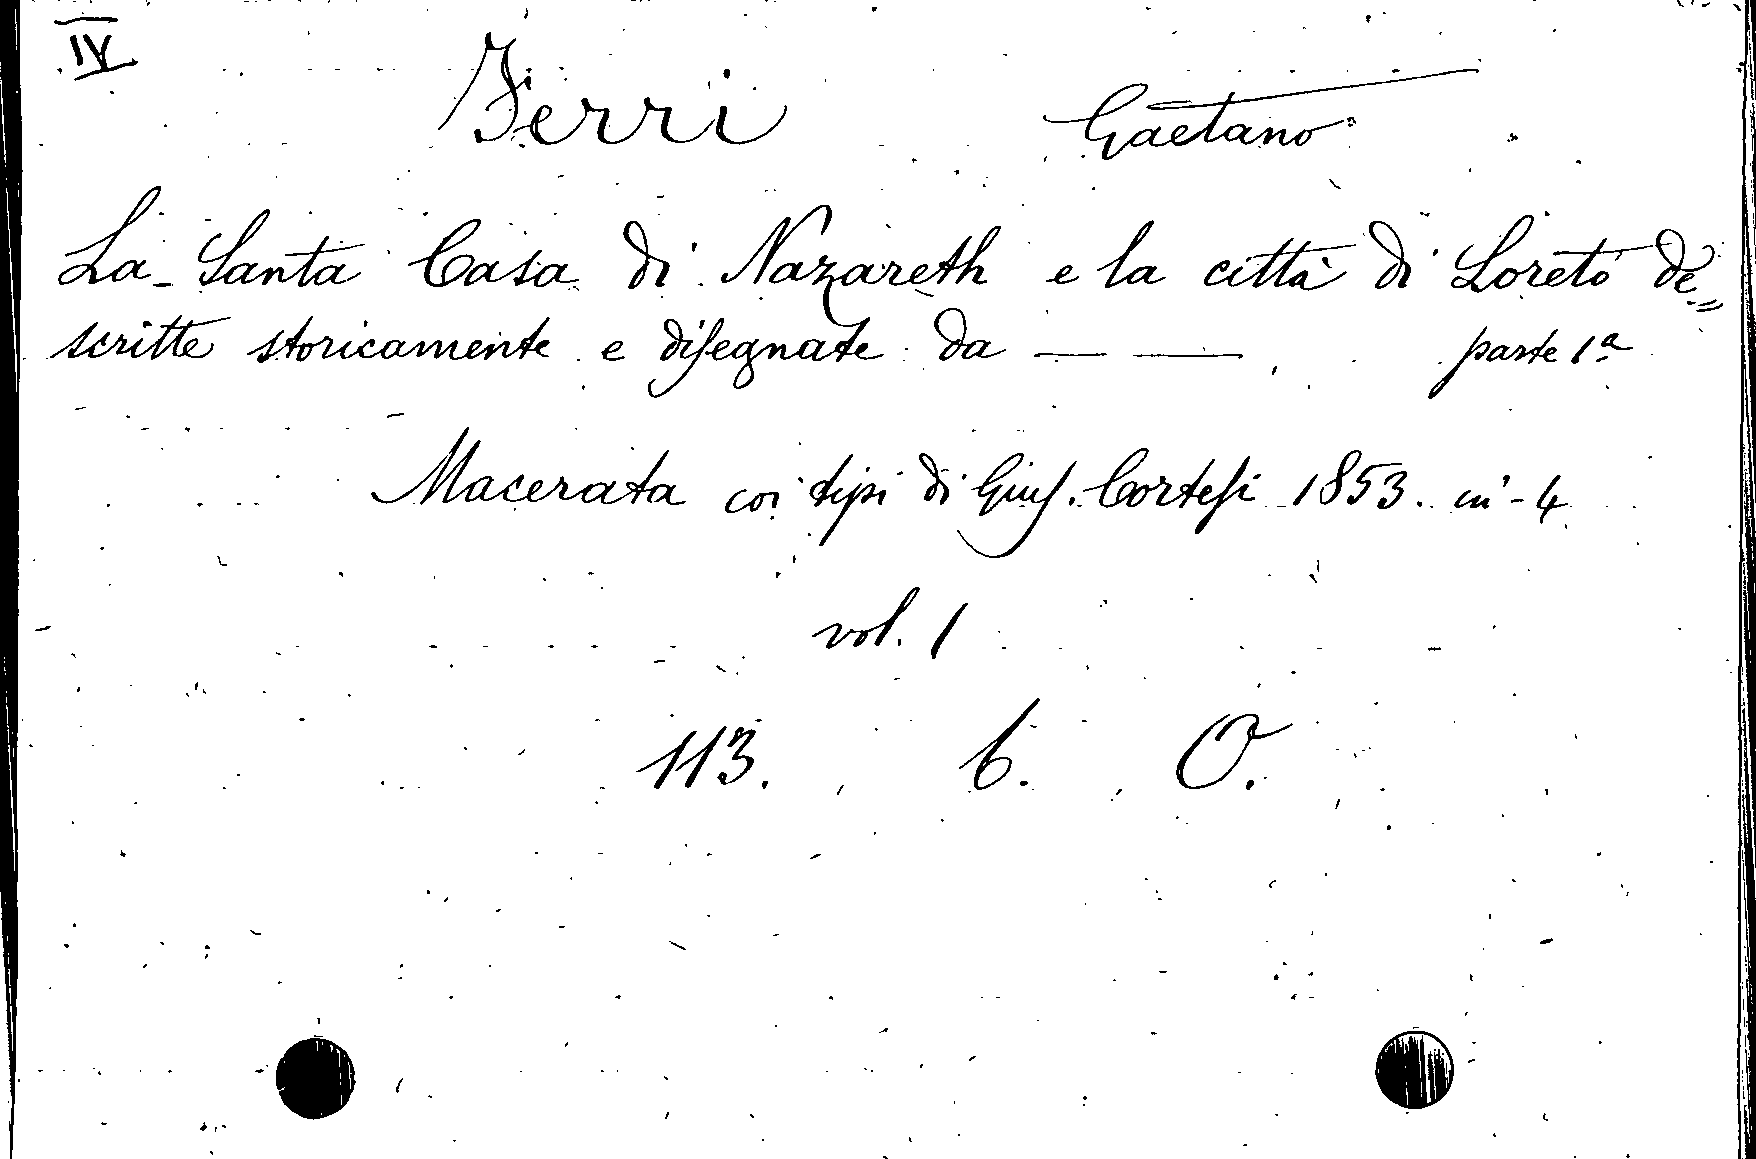 IV
Ferri Gaetano
La Santa Casa di Nazareth e la città di Loreto de=
scritte storicamente e disegnate da — — parte 1ª
Macerata coi tipi di Gius. Cortesi 1853. in-4
vol. 1
113. 6. O.